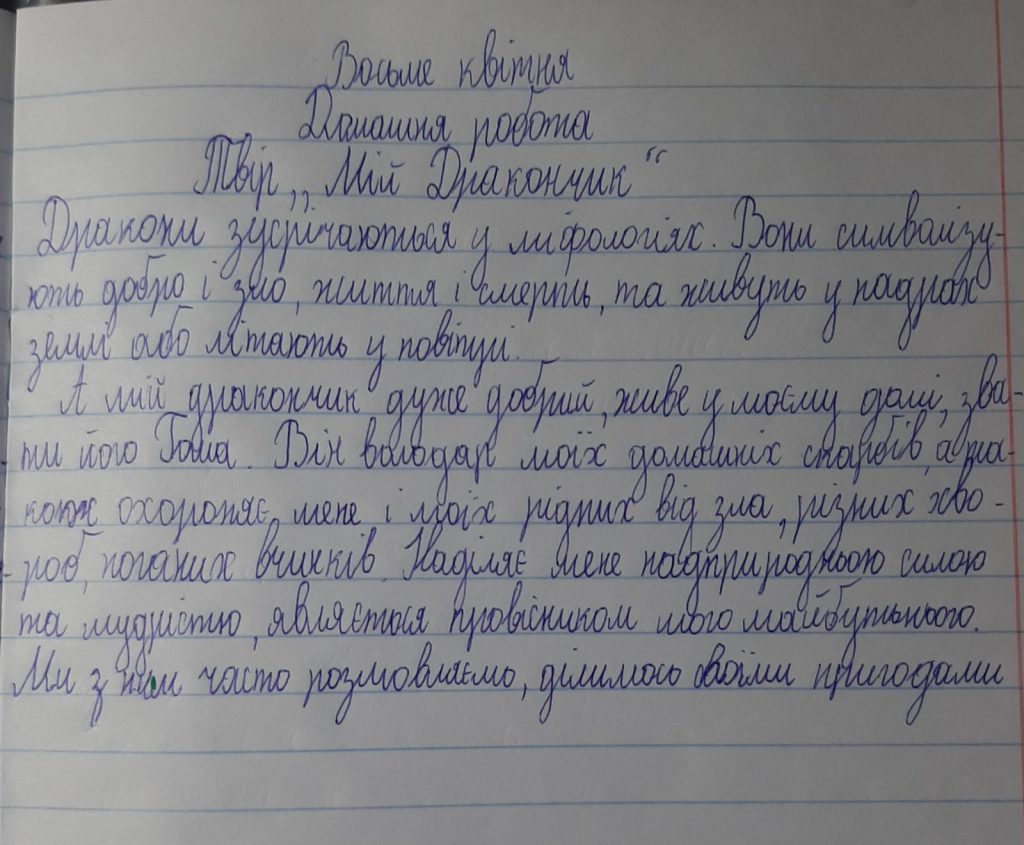 Восьме квітня
Домашня робота
Твір „Мій Дракончик“
Дракони зустрічаються у міфологіях. Вони символізу-
ють добро і зло, життя і смерть, та живуть у надрах
землі або літають у повітрі.
А мій дракончик дуже добрий, живе у моєму домі, зва-
ти його Гоша. Він володар моїх домашніх скарбів, а та-
кож охороняє мене і моїх рідних від зла, різних хво-
роб, поганих вчинків. Наділяє мене надприродньою силою
та мудрістю, являється провісником мого майбутнього.
Ми з ним часто розмовляємо, ділимось своїми пригодами